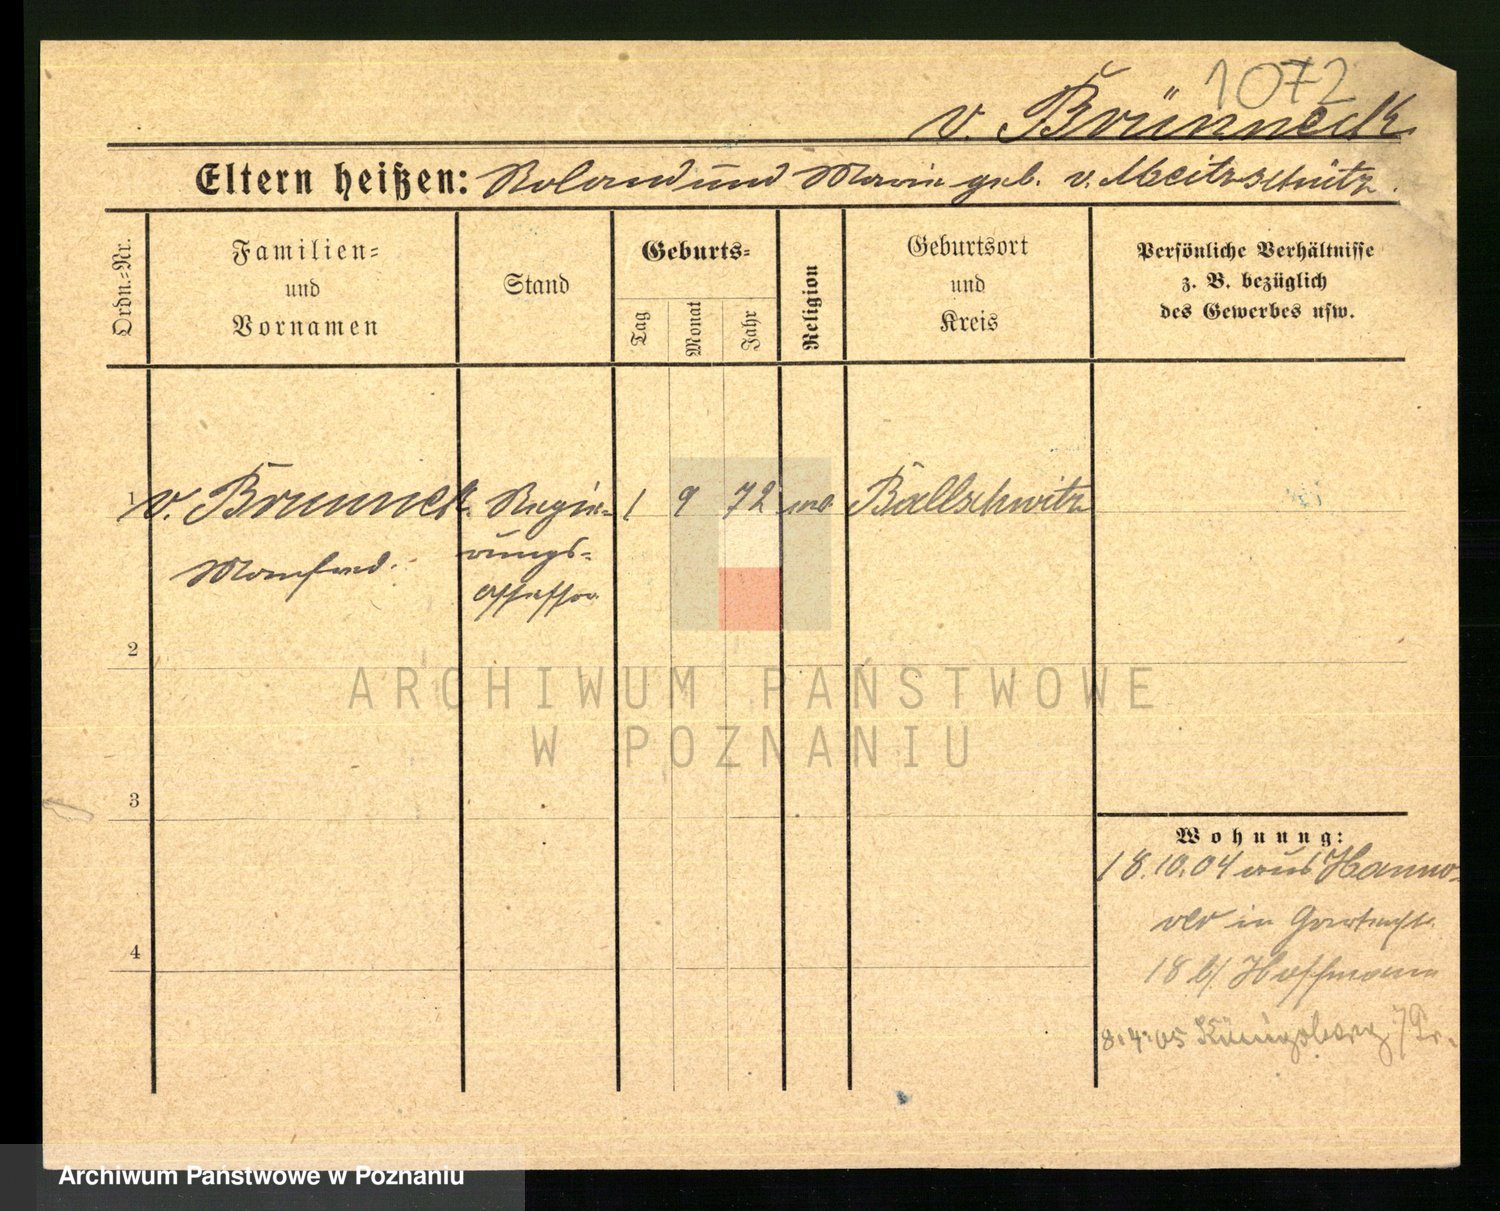 1072
v. Brünneck.
Eltern heißen: Roland und Marie geb. v. Meitzschütz.
Ordn.-Nr.
Familien-
und
Vornamen
Stand
Geburts-
Tag
Monat
Jahr
Religion
Geburtsort
und
Kreis
Persönliche Verhältnisse
z. B. bezüglich
des Gewerbes usw.
1 v. Brünneck Regie- 1 9 72 Ballschwitz
Manfred. rungs-
assessor
2
ARCHIWUM PAŃSTWOWE
W POZNANIU
3
Wohnung:
18.10.04 aus Hanno-
ver in
4
18 b/ Hoffmann
8.4.05 Königsberg /Pr.
Archiwum Państwowe w Poznaniu